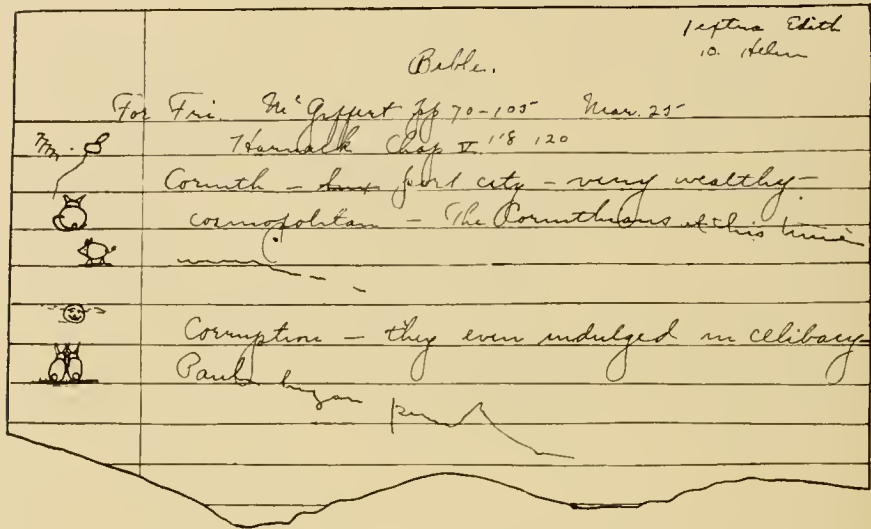 Edith
10. Helen
Bible.
For Fri. McGiffert pp 70-105 Mar. 25
Harnack Chap V 118 120
Corinth – port city – very wealthy –
cosmopolitan – The Corinthians of this time
Corruption – they even indulged in celibacy –
Paul began